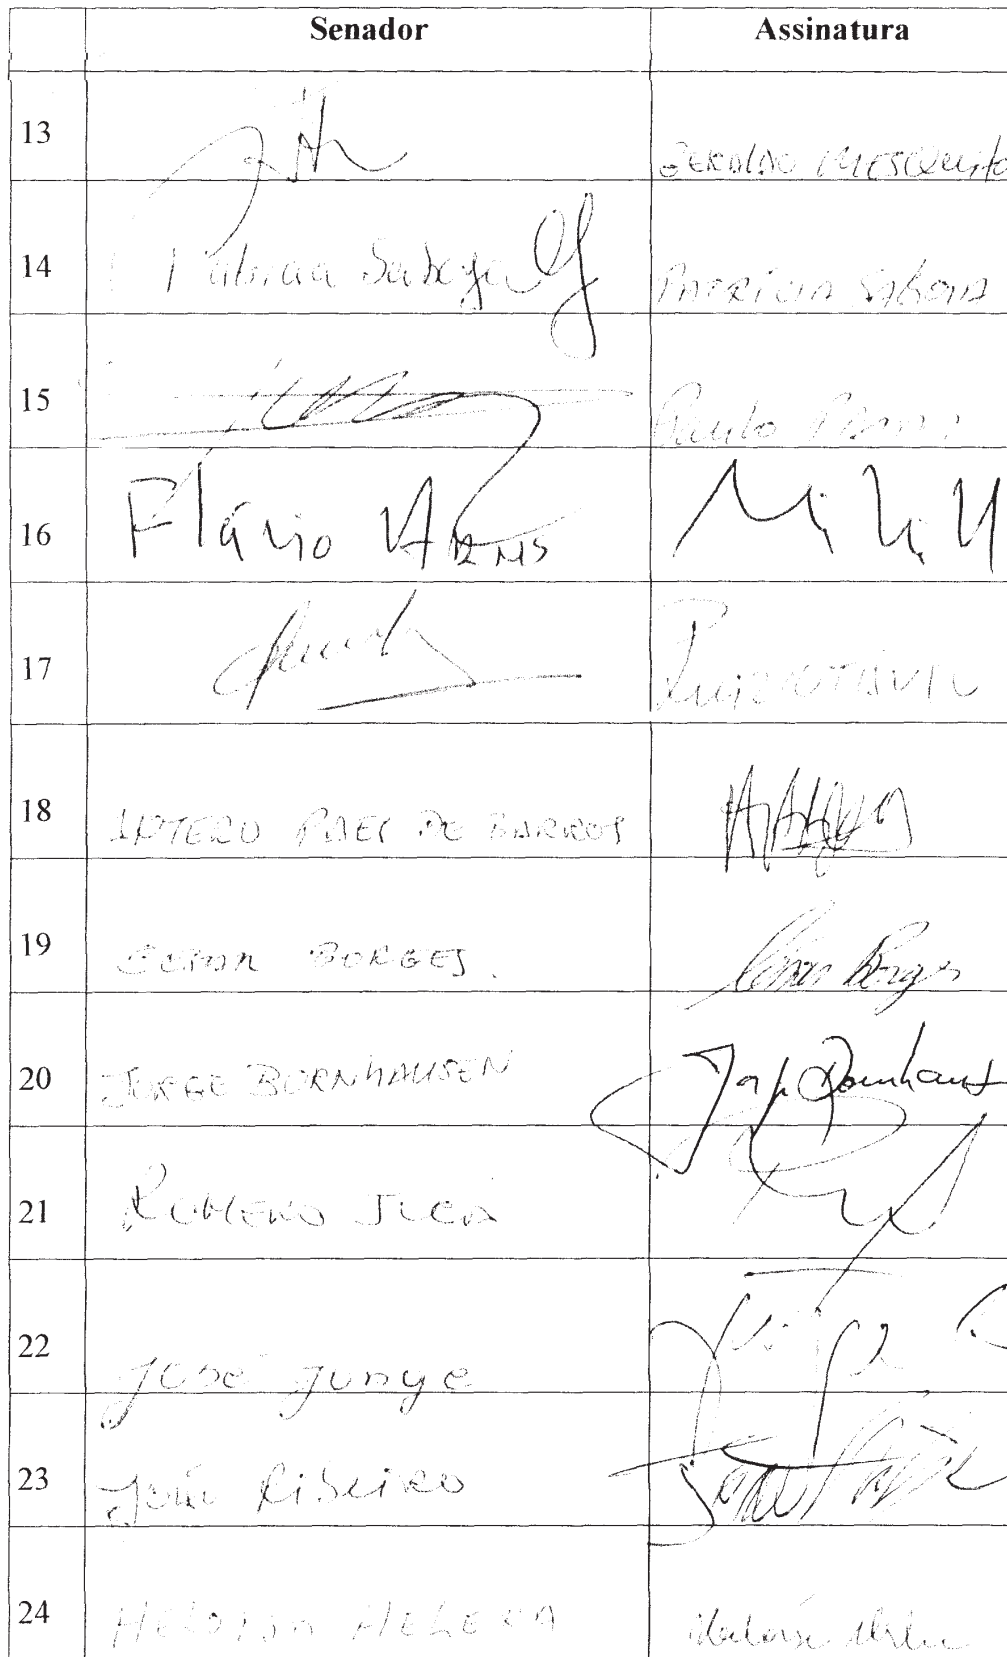 Senador Assinatura
13 GERALDO MESQUITA
14 Patricia Saboya PATRICIA SABOIA
15 Paulo Paim
16 Flávio ARNS
17 LUIZ OTÁVIO
18 ANTERO PAES DE BARROS
19 CESAR BORGES. César Borges
20 JORGE BORNHAUSEN Jorge Bornhausen
21 ROMERO JUCÁ
22 José Jorge
23 João Ribeiro
24 HELOISA HELENA Heloísa Helena